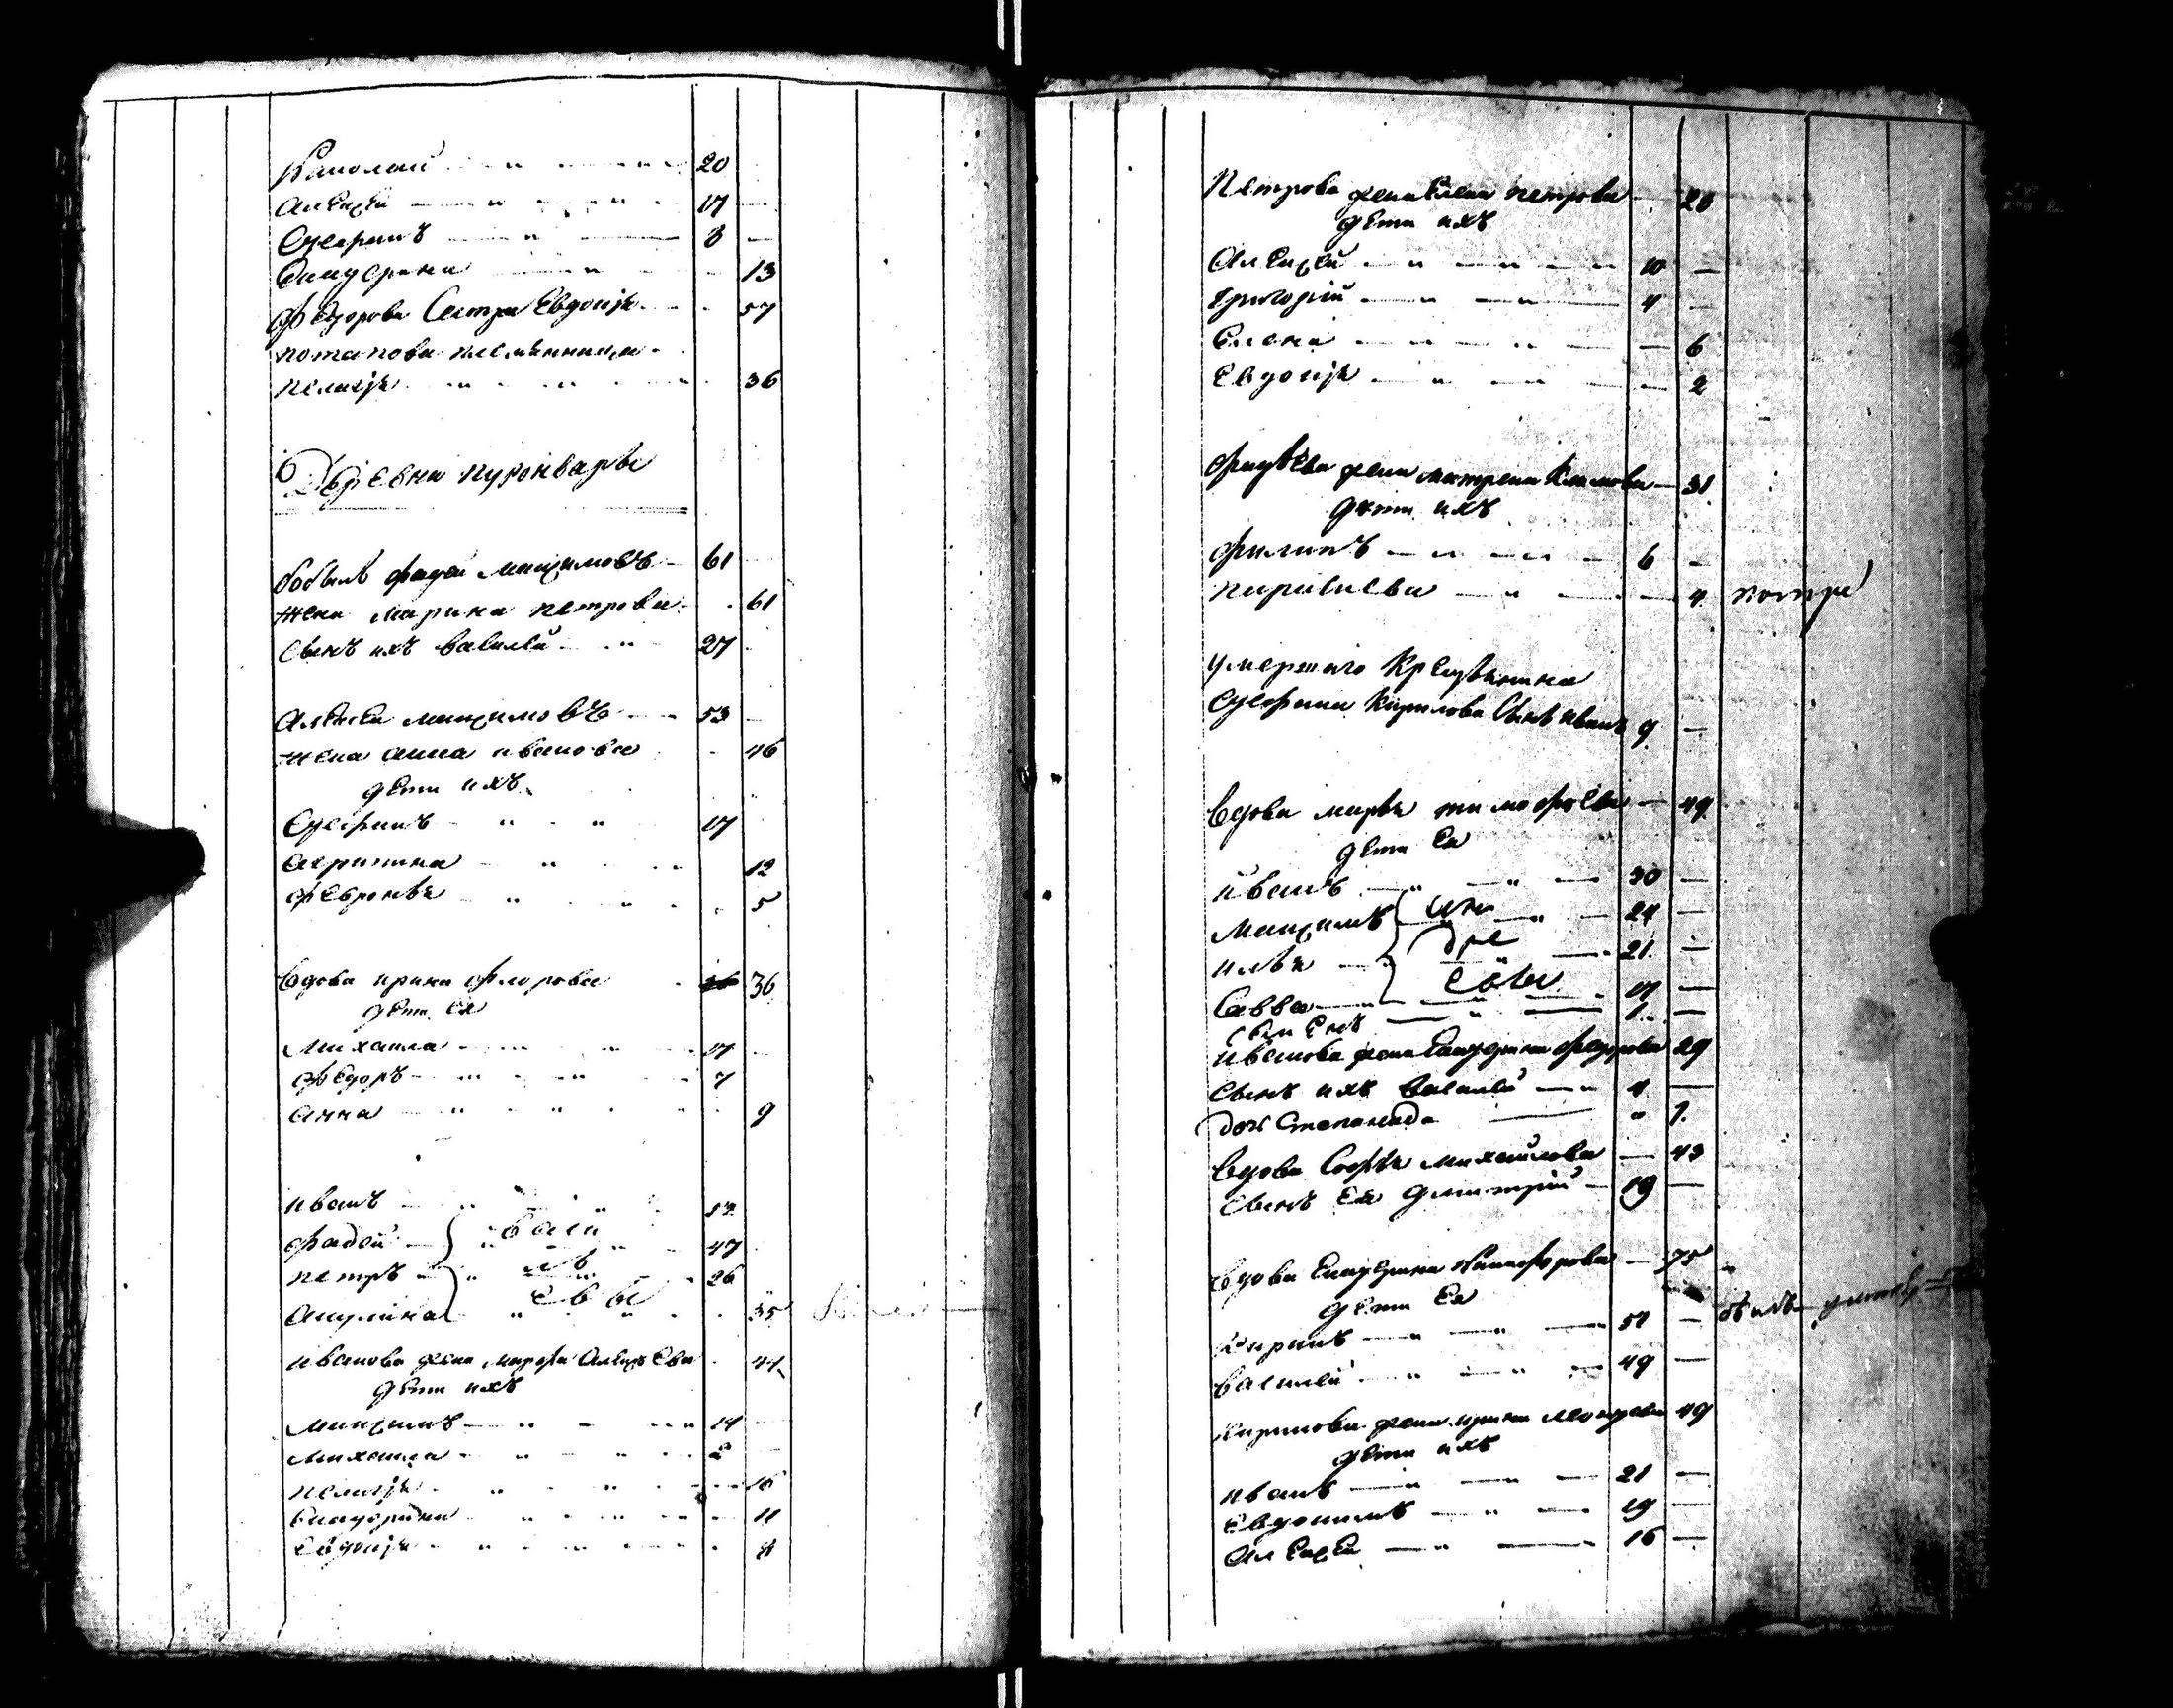 Николай 20
Алексей 17
Стефанъ 8
Екатерина 13
Федорова Сестра Евдокія 57
потапова племянница
пелагія 36
Деревня
бобыль фадей максимовъ 61
жена марина петрова 61
Сынъ ихъ василей 27
Алексей максимовъ 53
жена анна иванова 46
дети ихъ
Стефанъ 17
акрипина 12
Февронья 5
вдова ирина флорова 36
дети Ея
Михаила 17
Федоръ 7
анна 9
иванъ
фадей 47
петръ 26
Акулина 35
иванова жена марфа Алексеева 44
дети ихъ
максимъ 14
михаила 2
пелагія 16
Екатерина 11
Евдокія 8
Петрова жена Елена петрова 28
дети ихъ
Алексей 10
григорій 4
Елена 6
Евдокія 2
фадѣева жена матрена Климова 31
дѣти ихъ
филипъ 6
параскева 4
умершаго Крестьянина
Стефана Кирилова Сынъ иванъ 9
Вдова марья тимофѣева 49
дети Ея
иванъ 30
максимъ 24
илья 21
Савва 17
иванова жена Екатерина федорова 29
Сынъ ихъ василей 4
дочь Степанида 1
Вдова Софья михайлова 43
Сынъ Ея димитрій 19
Вдова Екатерина Никифорова 75
дети Ея
Кирилъ 51
василей 49
Кирилова жена ирина 49
дети ихъ
иванъ 21
Евдокимъ 19
Алексей 16